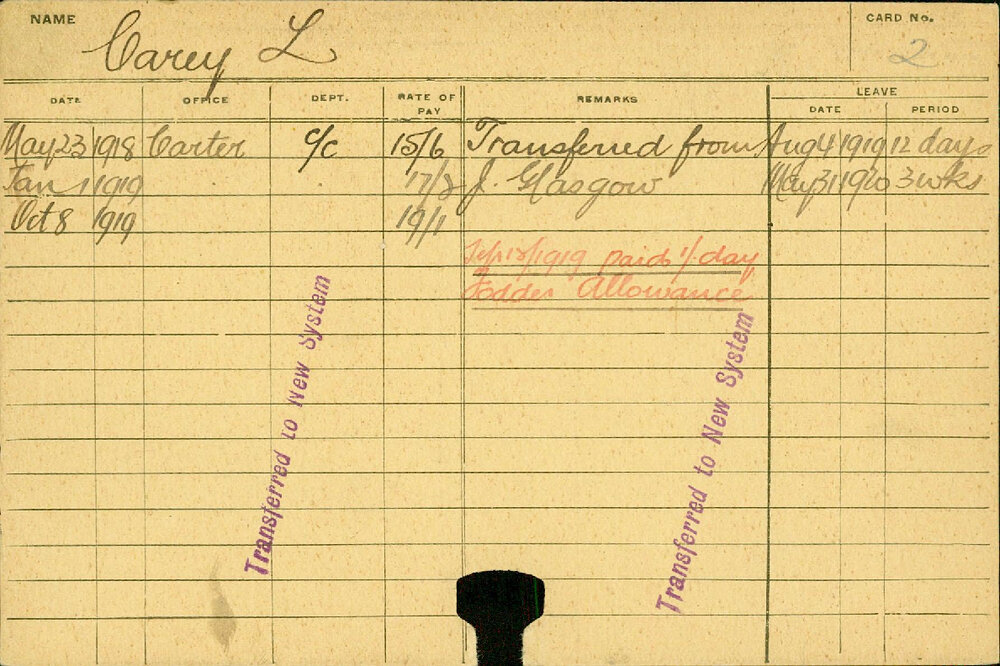 NAME Carey L CARD No. 2
DATE OFFICE DEPT. RATE OF PAY REMARKS LEAVE
DATE PERIOD
May 23 1918 Carter C/C 15/6 Transferred from Aug 4 1919 12 days
Jan 1 1919 17/3 J. Glasgow May 31 1920 3 wks
Oct 8 1919 19/1
1919 paid 1/- day
Fodder Allowance
Transferred to New System
Transferred to New System